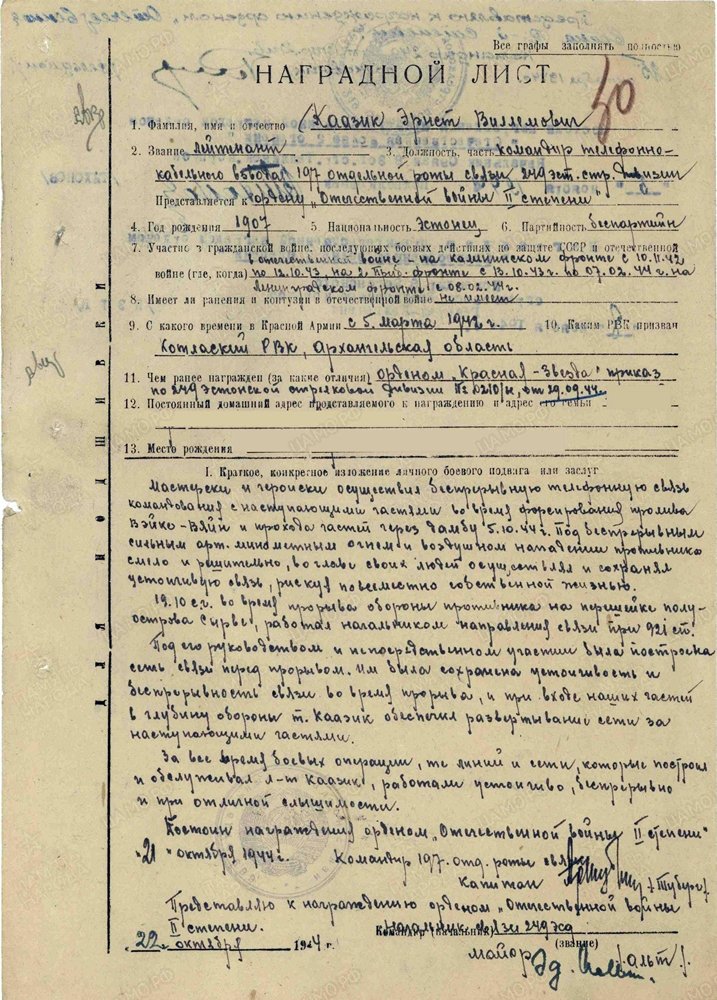 Все графы заполнять полностью
НАГРАДНОЙ ЛИСТ
50
1. Фамилия, имя и отчество Каазик Эрнст Виллемович
2. Звание лейтенант 3. Должность, часть командир телефонно-
кабельного взвода 197 отдельной роты связи 249 эст. стр. дивизии
Представляется к ордену "Отечественной войны II степени"
4. Год рождения 1907 5. Национальность Эстонец 6. Партийность беспартийн
7. Участие в гражданской войне, последующих боевых действиях по защите СССР и отечественной
в отечественной войне - на калининском фронте с 10.11.42
войне (где, когда) по 12.10.43, на 2 Приб. фронте с 13.10.43 г. по 07.02.44 г. на
Ленинградском фронте с 08.02.44 г.
8. Имеет ли ранения и контузии в отечественной войне не имеет
9. С какого времени в Красной Армии с 5. марта 1942 г. 10. Каким РВК призван
Котлаский РВК, Архангельская область
11. Чем ранее награжден (за какие отличия) орденом "Красная - Звезда" приказ
по 249 Эстонской стрелковой дивизии № 0210/н, от 29.09.44.
12. Постоянный домашний адрес представляемого к награждению и адрес его семьи
13. Место рождения
I. Краткое, конкретное изложение личного боевого подвига или заслуг
Мастерски и геройски осуществил беспрерывную телефонную связь
командования с наступающими частями во время форсирования пролива
Вэйке-Вяйн и прохода частей через дамбу 5.10.44 г. Под беспрерывным
сильным арт. минометным огнем и воздушном нападении противника
смело и решительно, во главе своих людей осуществлял и сохранял
устойчивую связь, рискуя повсеместно собственной жизнью.
19.10 с.г. во время прорыва обороны противника на перешейке полу-
острова Сырве, работал начальником направления связи при 921 сп.
Под его руководством и непосредственном участии была построена
сеть связи перед прорывом. Им была сохранена устойчивость и
беспрерывность связи во время прорыва, и при входе наших частей
в глубину обороны т. Каазик обеспечил развертывание сети за
наступающими частями.
За все время боевых операции, те линий и сети, которые построил
и обслуживал л-т Каазик, работали устойчиво, беспрерывно
и при отличной слышимости.
Достоин награждения орденом "Отечественной войны II степени"
"21" октября 1944 г. Командир 197. отд. роты связи
Капитан /Туберг/
Представляю к награждению орденом "Отечественной войны
II степени. Начальник связи 249 эсд
Командир (начальник)
22 октября 1944 г. (звание)
майор Эд. /альт/.
ДЛЯ ПОДШИВКИ